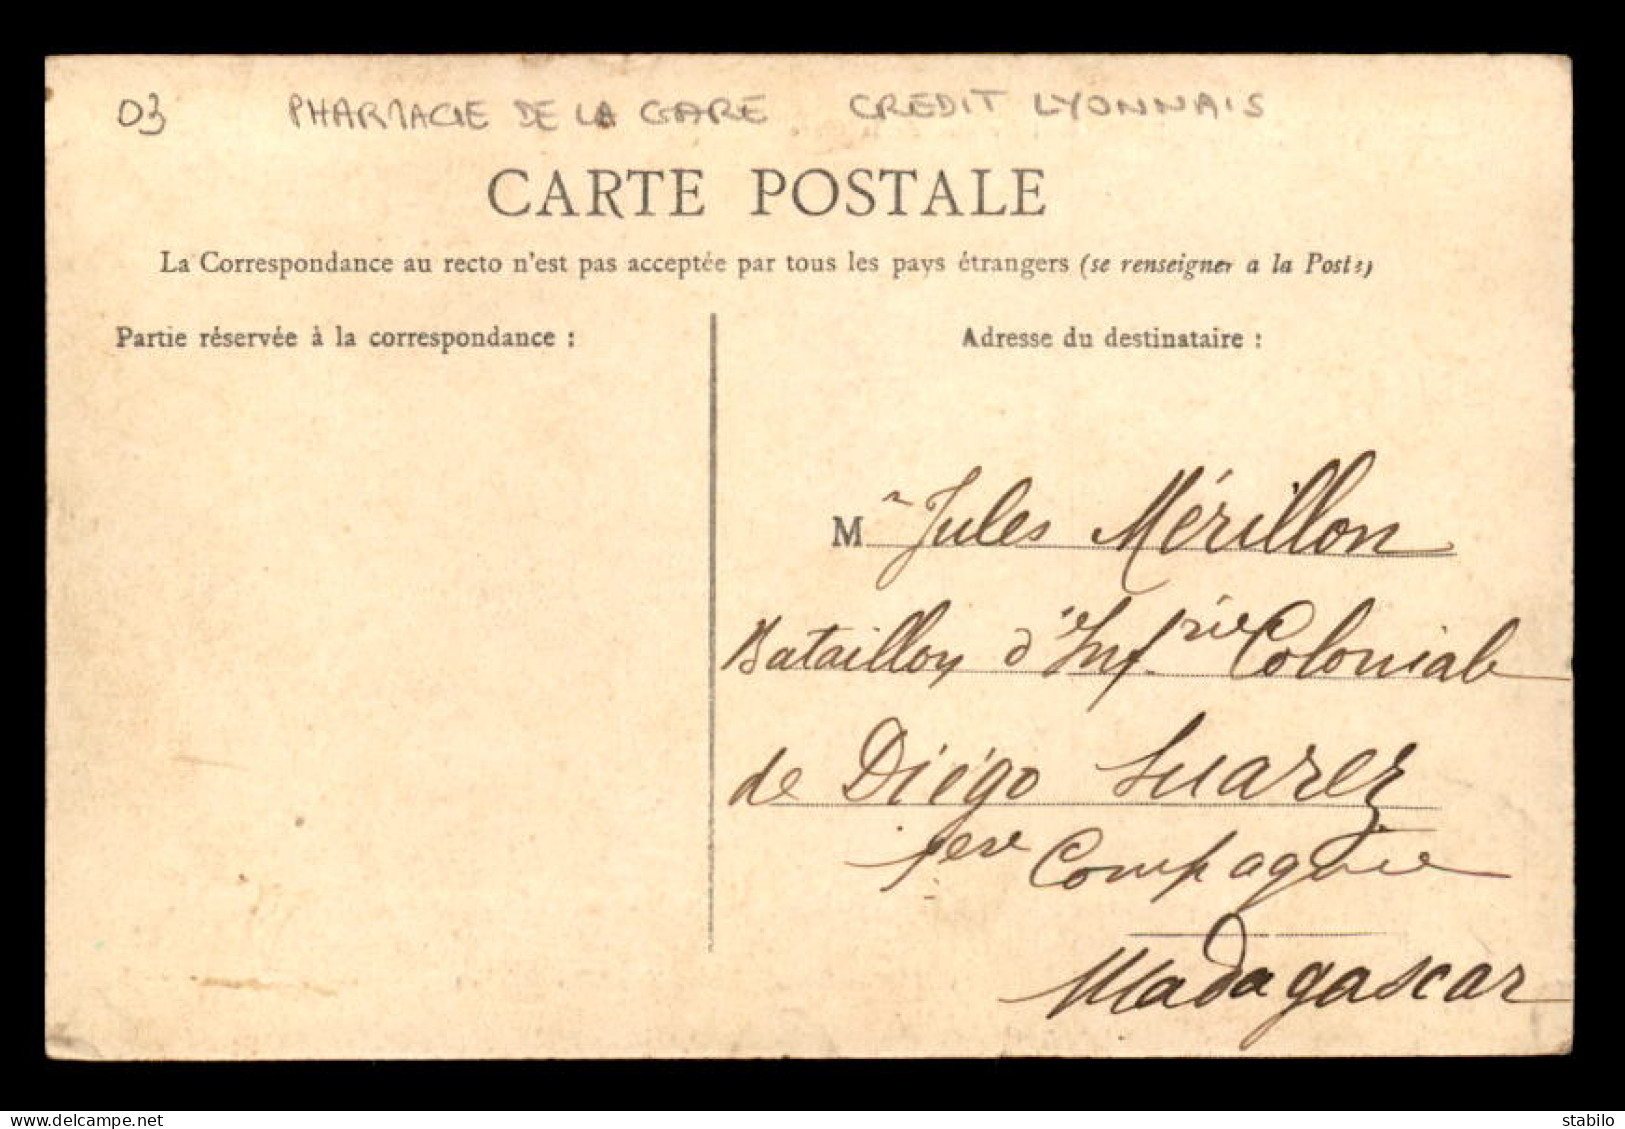 03 PHARMACIE DE LA GARE CREDIT LYONNAIS
CARTE POSTALE
La Correspondance au recto n'est pas acceptée par tous les pays étrangers (se renseigner a la Poste)
Partie réservée à la correspondance :
Adresse du destinataire :
Mr Jules Mérillon
Bataillon d'Infrie Coloniale
de Diégo Suarez
1ere Compagnie
Madagascar
delcampe.net
stabilo